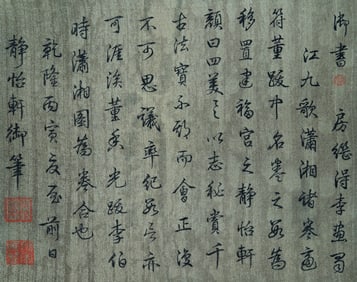 御書房繼得李畫蜀
江九歌瀟湘諸卷適
符董跋中名卷之數為
移置建福宮之靜怡軒
顏曰四美具以志秘賞千
古法寶不期而會正復
不可思議率紀數言亦
可涯涘董香光跋李伯
時瀟湘圖舊卷合也
乾隆丙寅夏至前日
靜怡軒御筆